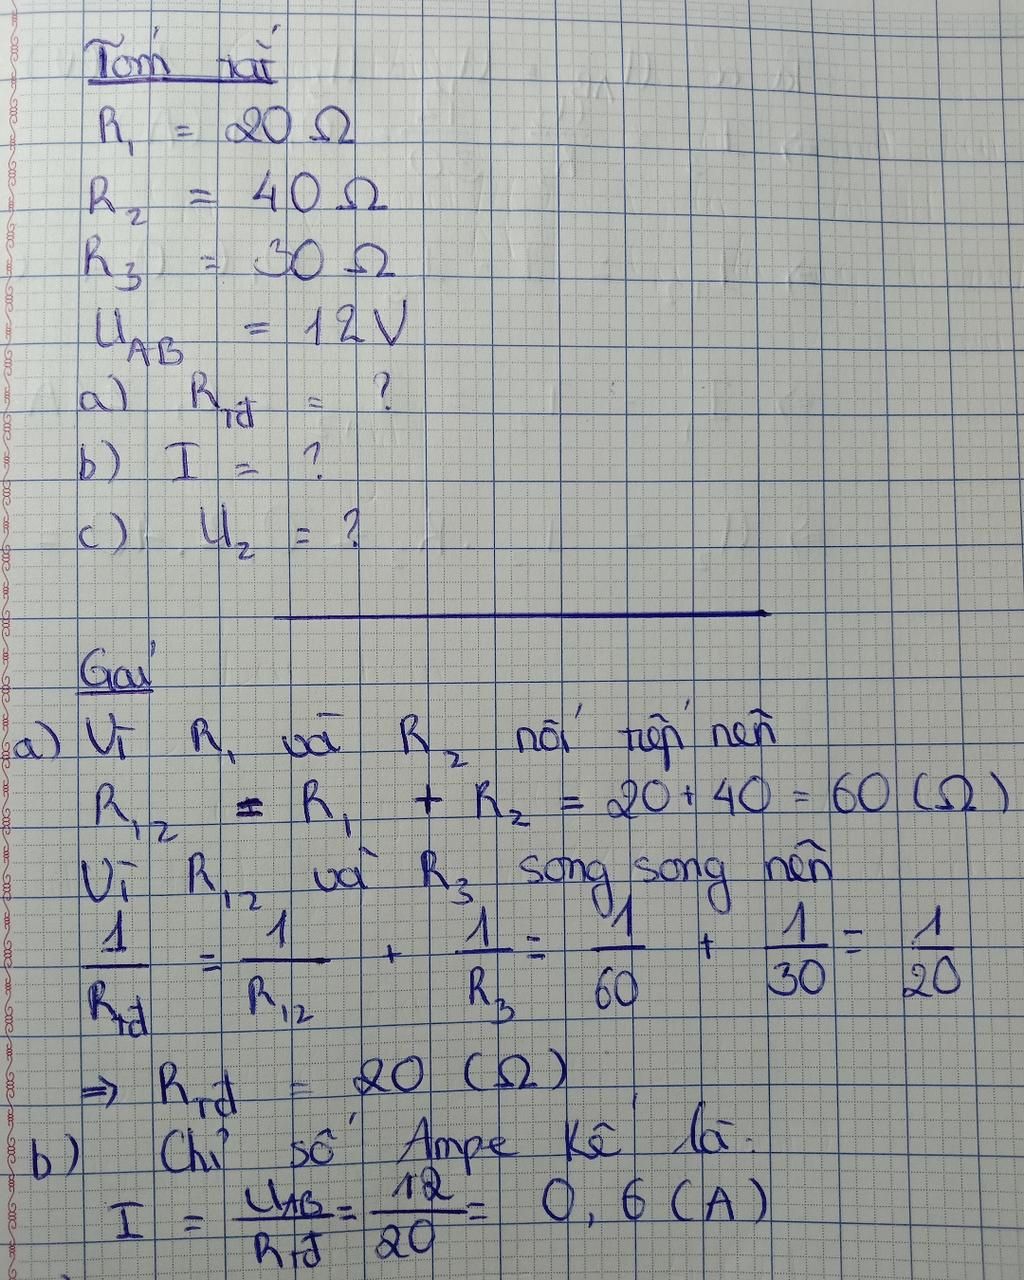 Tóm tắt
R₁ = 20 Ω
R₂ = 40 Ω
R₃ = 30 Ω
U_AB = 12V
a) R_tđ = ?
b) I = ?
c) U₂ = ?
Gải
a) Vì R₁ và R₂ nối tiếp nên
R₁₂ = R₁ + R₂ = 20 + 40 = 60 (Ω)
Vì R₁₂ và R₃ song song nên
1/R_tđ = 1/R₁₂ + 1/R₃ = 1/60 + 1/30 = 1/20
⇒ R_tđ = 20 (Ω)
b) Chỉ số Ampe kế là:
I = U_AB/R_tđ = 12/20 = 0,6 (A)